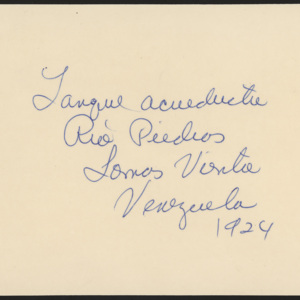 Tanque acueducto
Río Piedras
Lomas Venta
Venezuela
1924